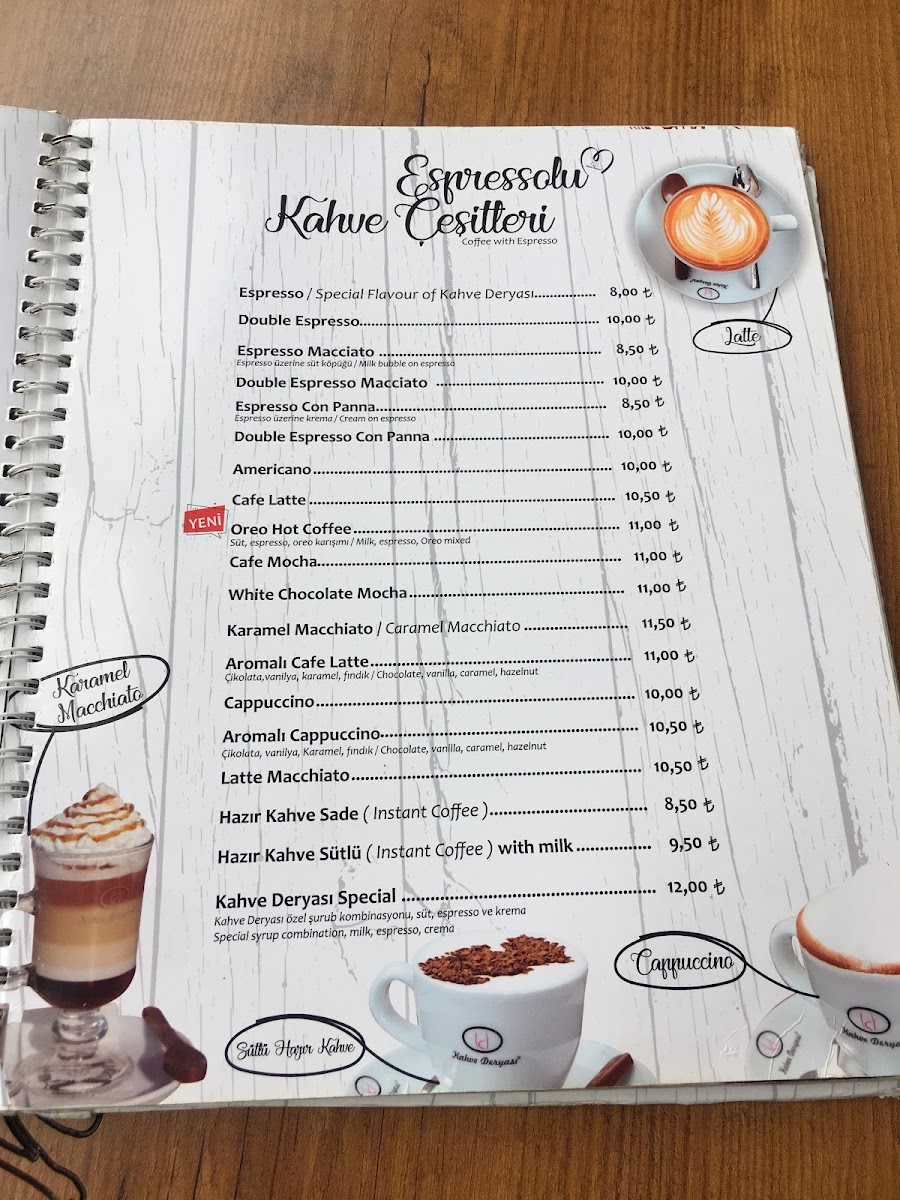 Espressolu
Kahve Çeşitleri
Coffee with Espresso
Latte
Espresso / Special Flavour of Kahve Deryası............... 8,00 ₺
Double Espresso............................................................ 10,00 ₺
Espresso Macciato ........................................................ 8,50 ₺
Espresso üzerine süt köpüğü / Milk bubble on espresso
Double Espresso Macciato .......................................... 10,00 ₺
Espresso Con Panna...................................................... 8,50 ₺
Espresso üzerine krema / Cream on espresso
Double Espresso Con Panna ........................................ 10,00 ₺
Americano...................................................................... 10,00 ₺
Cafe Latte ....................................................................... 10,50 ₺
YENİ
Oreo Hot Coffee.............................................................. 11,00 ₺
Süt, espresso, oreo karışımı / Milk, espresso, Oreo mixed
Cafe Mocha...................................................................... 11,00 ₺
White Chocolate Mocha.................................................. 11,00 ₺
Karamel Macchiato / Caramel Macchiato ....................... 11,50 ₺
Aromalı Cafe Latte........................................................... 11,00 ₺
Çikolata,vanilya, karamel, fındık / Chocolate, vanilla, caramel, hazelnut
Cappuccino...................................................................... 10,00 ₺
Aromalı Cappuccino......................................................... 10,50 ₺
Çikolata, vanilya, Karamel, fındık / Chocolate, vanilla, caramel, hazelnut
Latte Macchiato............................................................... 10,50 ₺
Hazır Kahve Sade ( Instant Coffee ).................................. 8,50 ₺
Hazır Kahve Sütlü ( Instant Coffee ) with milk ................ 9,50 ₺
Kahve Deryası Special ...................................................... 12,00 ₺
Kahve Deryası özel şurub kombinasyonu, süt, espresso ve krema
Special syrup combination, milk, espresso, crema
Karamel
Macchiato
Cappuccino
Sütlü Hazır Kahve
Kahve Deryası
Kahve Derya